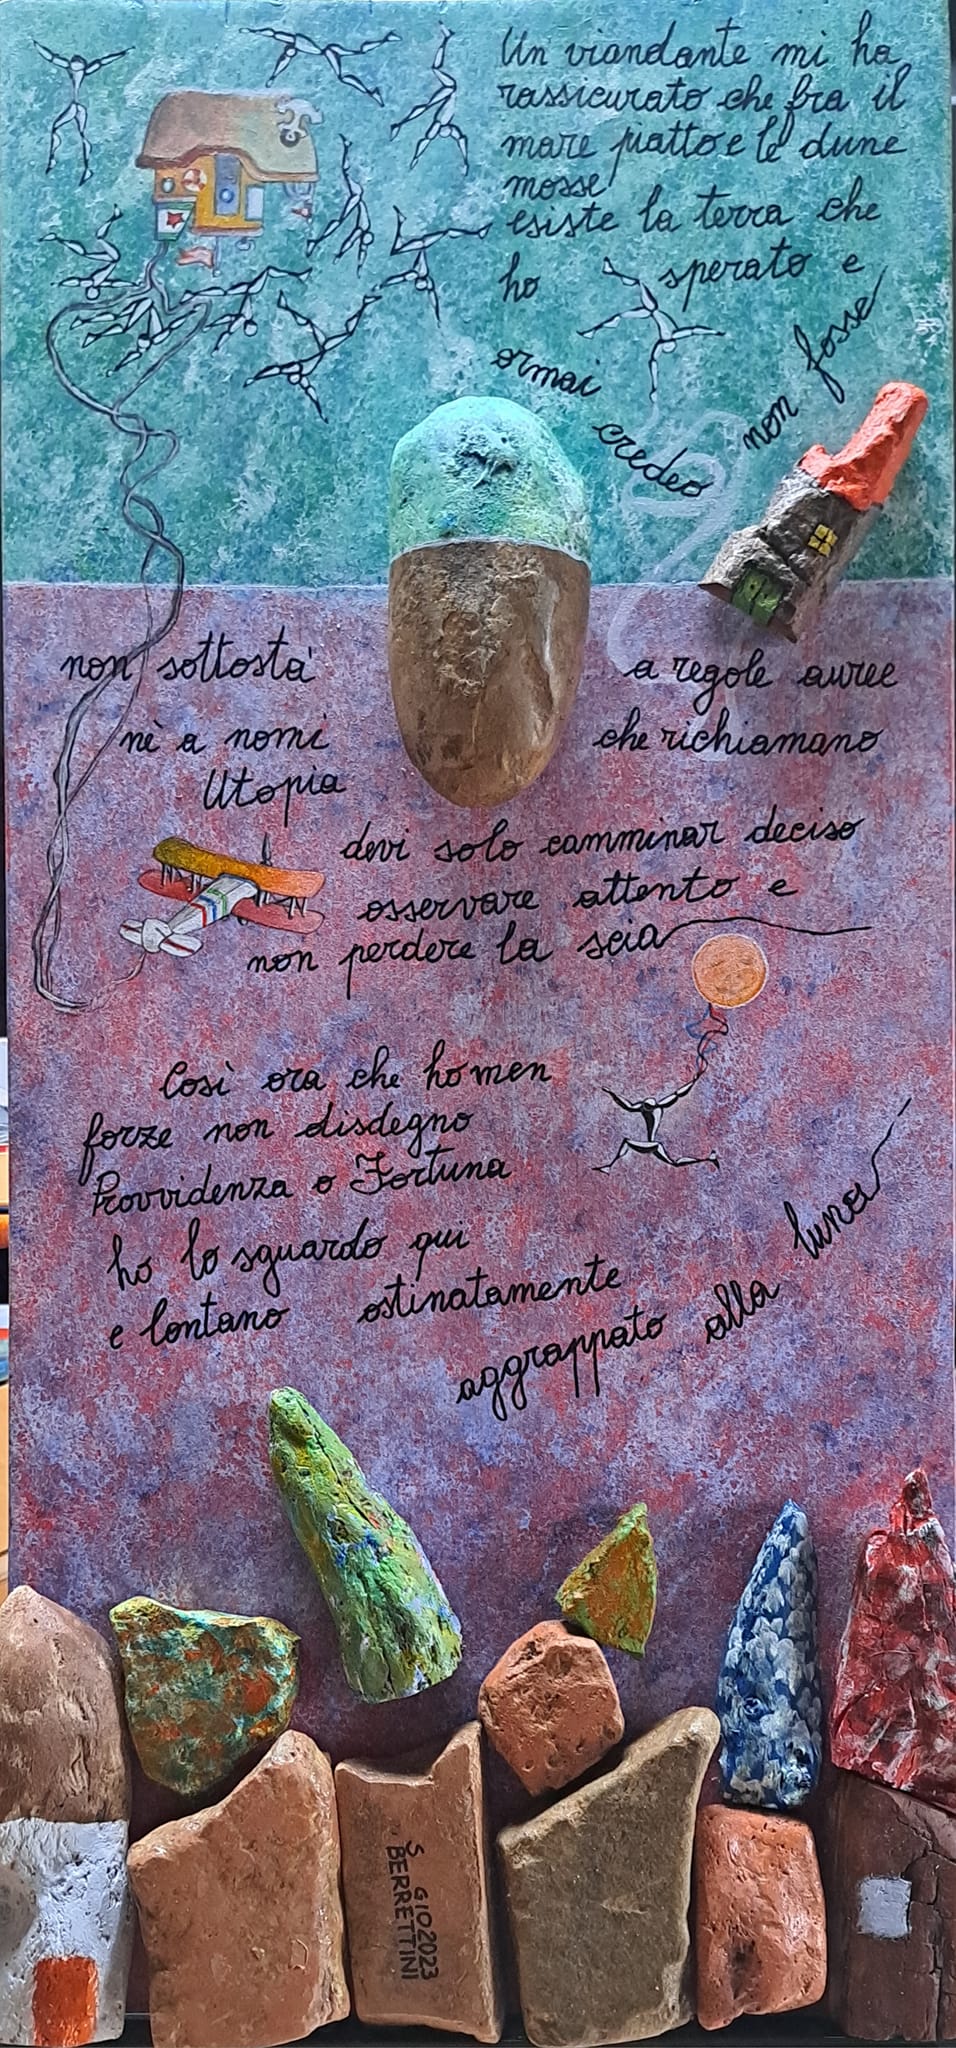 Un viandante mi ha
rassicurato che fra il
mare piatto e le dune
mosse
esiste la terra che
ho sperato e
ormai credeo non fosse
non sottosta' a regole auree
nè a nomi che richiamano
Utopia
devi solo camminar deciso
osservare attento e
non perdere la scia
Così ora che ho men
forze non disdegno
Provvidenza o Fortuna
ho lo sguardo qui
e lontano ostinatamente
aggrappato alla luna
S GIO2023
BERRETTINI